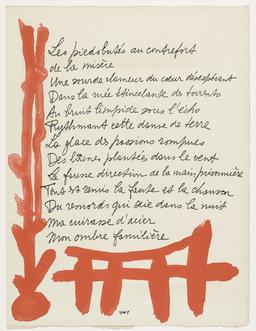 Les pieds butés au contrefort
de la misère
Une sourde clameur du cœur désespérant
Dans la nuée étincelante des torrents
Au bruit limpide sous l'écho
Rythmant cette danse de terre
La glace des passions rompues
Des bornes plantées dans le vent
La fausse direction de la main prisonnière
Tout est remis la faute et la chanson
Du remords qui crie dans la nuit
Ma cuirasse d'acier
Mon ombre familière